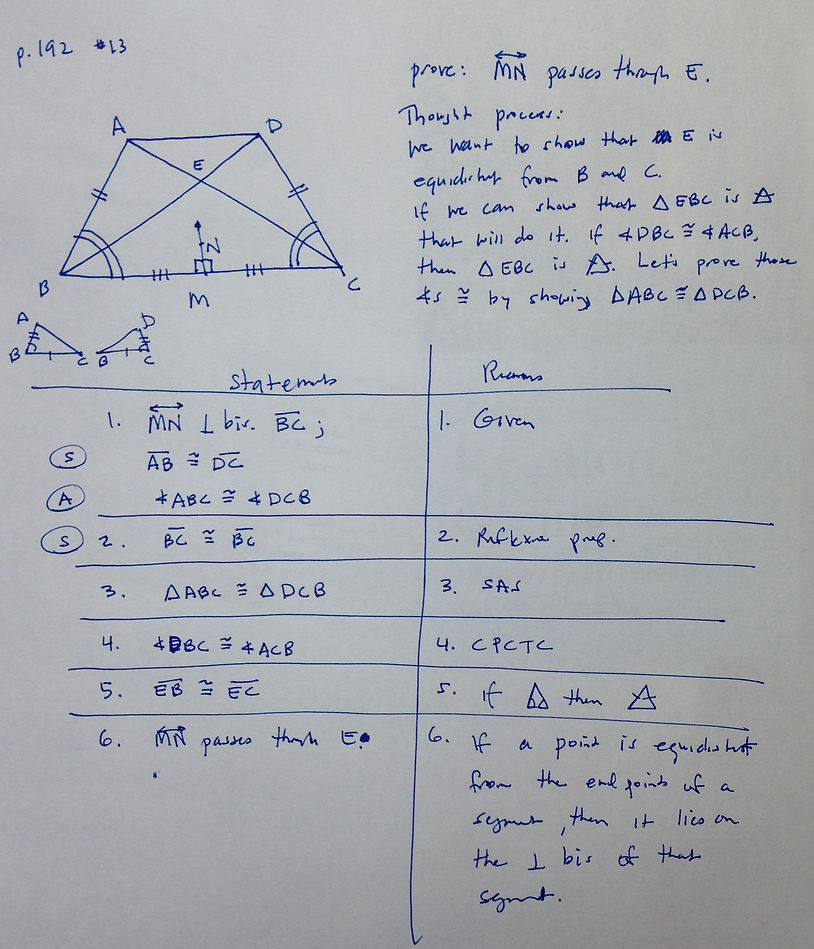 p.192 #13
prove: MN passes through E.
Thought process:
We want to show that E is
equidistant from B and C.
If we can show that △EBC is
that will do it. If ∡DBC ≅ ∡ACB,
then △EBC is . Let's prove those
∡s ≅ by showing △ABC ≅ △DCB.
A D
E
N
B M C
A D
B C B C
Statements Reasons
1. MN ⊥ bis. BC ; 1. Given
S AB ≅ DC
A ∡ABC ≅ ∡DCB
S 2. BC ≅ BC 2. Reflexive prop.
3. △ABC ≅ △DCB 3. SAS
4. ∡DBC ≅ ∡ACB 4. CPCTC
5. EB ≅ EC 5. If then
6. MN passes through E. 6. If a point is equidistant
from the endpoints of a
segment, then it lies on
the ⊥ bis of that
segment.